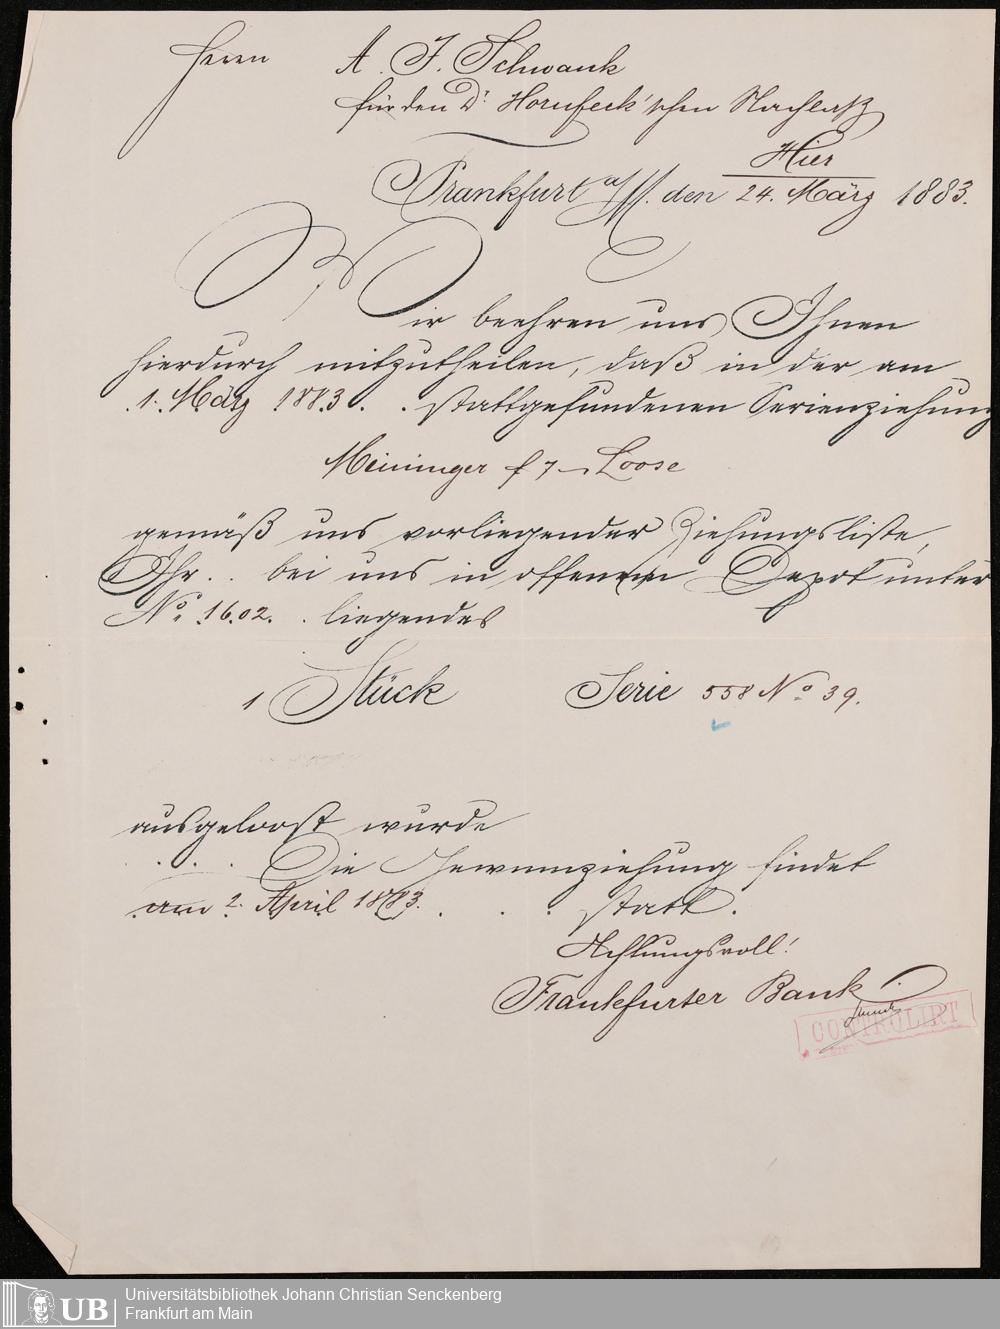 Herrn A. J. Schwank
für den Dr. Hornfeck'schen Nachlaß
Hier
Frankfurt a/M. den 24. März 1883.
Wir beehren uns, Ihnen
hierdurch mitzutheilen, daß in der am
1. März 1883 stattgefundenen Serienziehung
Meininger f 7 Loose
gemäß uns vorliegender Ziehungsliste,
Ihr bei uns in offenem Depot unter
No. 1602. liegendes
1 Stück Serie 558 No. 39.
ausgeloost wurde
Die Gewinnziehung findet
am 2. April 1883. statt.
Achtungsvoll!
Frankfurter Bank
CONTROLIRT
UB Universitätsbibliothek Johann Christian Senckenberg
Frankfurt am Main